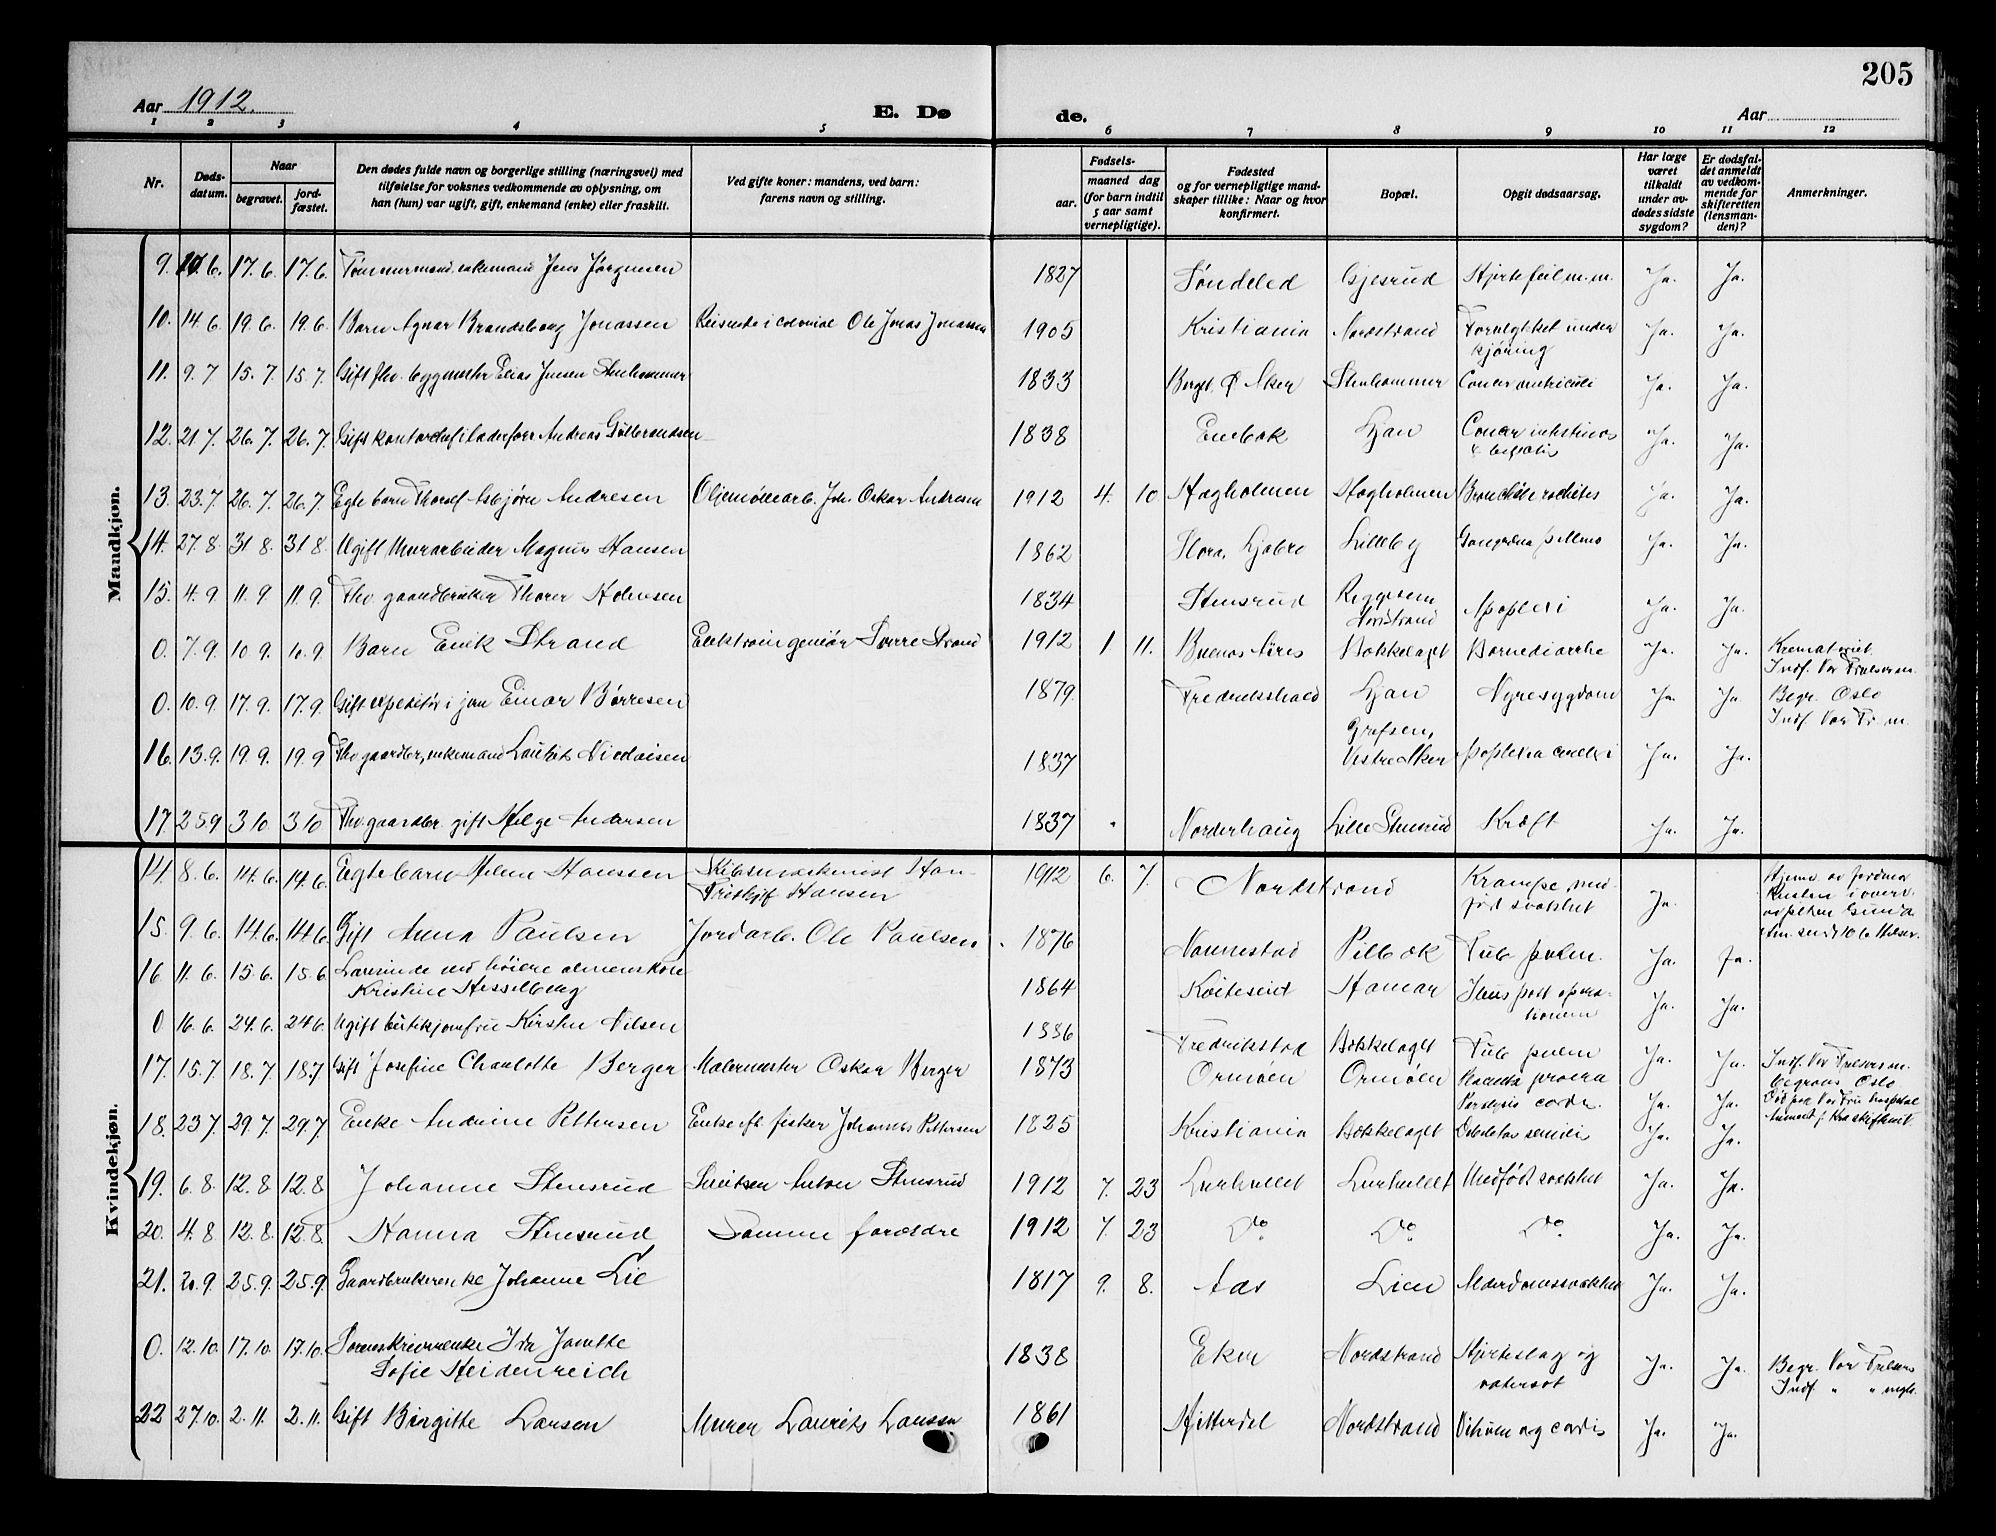 205
Aar 1912. E. Dø de. Aar
1 2 3 4 5 6 7 8 9 10 11 12
Nr. Døds-datum. Naar begravet. jord-fæstet. Den dødes fulde navn og borgerlige stilling (næringsvei) med tilføielse for voksnes vedkommende av oplysning, om han (hun) var ugift, gift, enkemand (enke) eller fraskilt. Ved gifte koner: mandens, ved barn: farens navn og stilling. Fødsels- aar. maaned dag (for barn indtil 5 aar samt vernepligtige). Fødested og for vernepligtige mandskaper tillike: Naar og hvor konfirmert. Bopæl. Opgit dødsaarsag. Har læge været tilkaldt under avdødes sidste sygdom? Er dødsfaldet anmeldt av vedkommende for skifteretten (lensmanden)? Anmerkninger.
Mandkjøn.
9. 17.6. 17.6. Tømmermand, enkemand Jens Jørgensen 1827 Søndeled Gjesrud Hjertefeil m.m. Ja. Ja.
10. 14.6. 19.6. 19.6. Barn Agnar Jonassen Reisende i colonial Ole Jonas Jonassen 1905 Kristiania Nordstrand Forulykket under
kjøring Ja. Ja.
11. 9.7 15.7. 15.7. Gift fhv. Elias Jensen Stenhammer 1833 Ø. Aker Stenhammer Cancer ventriculi Ja. Ja.
12. 21 7. 26.7. 26.7. Gift Andreas Gulbrandsen 1838 Enebak Ljan Cancer intestinos Ja. Ja.
13. 23.7 26.7. 26.7. Egte barn Asbjørn Andresen Oljemøllearb. Joh. Oskar Andresen 1912 4. 10 Hagholmen Hagholmen Ja. Ja.
14. 27.8. 31 8. 31 8. Ugift Murarbeider Magnus Hansen 1862 Ljabro Lilleby Ja. Ja.
15. 4.9 11.9 11.9. Fhv. gaardbruker Thorer Halvorsen 1834 Stensrud
Nordstrand Apoplexi Ja. Ja.
0. 7.9. 10 9. 10.9 Barn Erik Strand Elektroingeniør Sverre Strand 1912 1 11. Buenos Aires Bækkelaget Barnediarrhe Ja. Ja. Krematoriet.
Indf. Vor Frelsers m.
0. 10.9 17.9. 17.9. Gift expeditør i jern Einar Børresen 1879. Fredrikshald Ljan Nyresygdom Ja. Ja Begr. Oslo
Indf. Vor Fr. m.
16. 13.9. 19.9. 19 9 Fhv. gaardbr, enkemand Lauritz Nicolaisen 1837 Grefsen,
Vestre Aker Apoplexia cerebri Ja. Ja.
17 25 9 3 10 3 10 Fhv. gaardbr. gift Helge Andersen 1837 Norderhaug Lille Stensrud Kræft Ja. Ja.
Kvindekjøn.
14. 8.6. 14.6. 14.6. Egtebarn Helene Hanssen Skibsmaskinist Han-
Fridtjof Hansen 1912 6. 7. Nordstrand Krampe, med-
født svakhet Ja.
15. 9.6. 14.6. 14.6. Gift Anna Paulsen Jordarb. Ole Paulsen 1876 Nannestad Pilbæk Tub. pulm. Ja. Ja.
16 11.6. 15.6. 15.6 Lærerinde ved høiere almenskole
Kristine Hesselberg 1864 Hamar Ileus post opera-
tionem Ja. Ja.
0 16.6. 24.6. 24.6. Ugift butikjomfru Kirsten Nilsen 1886 Fredrikstad Bækkelaget Tub. pulm Ja. Ja. Indf. Vor Frelsers m.
begraves Oslo
17. 15.7 18.7 18.7 Gift Josefine Charlotte Berger Malermester Oskar Berger 1873 Ormøen Ormøen Placenta prævia
Paralysis cordis. Ja. Ja. Død paa Vor Frue hospital
18. 23 7. 29.7. 29.7. Enke Andrine Pettersen Enke eft. fisker Johannes Pettersen 1825 Kristiania Bækkelaget Debilitas senilis Ja. Ja.
19. 6.8. 12.8 12.8 Johanne Stensrud Anton Stensrud 1912 7. 23 Medfødt svakhet Ja. Ja.
20. 4.8 12.8. 12.8. Hanna Stensrud Samme foreldre 1912 7. 23 Do Do Do. Ja. Ja.
21. 20.9. 25.9. 25.9. Gaardbrukerenke Johanne Lie 1817 9. 8. Aas Lien Alderdomssvakhet Ja. Ja.
0. 12.10. 17.10. 17.10. Sorenskriverenke Ida Janette
Sofie Heidenreich 1838 Eker Nordstrand Hjerteslag og
vatersot Ja. Ja. Begr. Vor Frelsers
Indf. " " mgh.
22 27.10. 2.11. 2.11. Gift Birgitte Larsen Murer Laurits Larsen 1861 Hitterdal Nordstrand Vitium org cordis Ja. Ja.